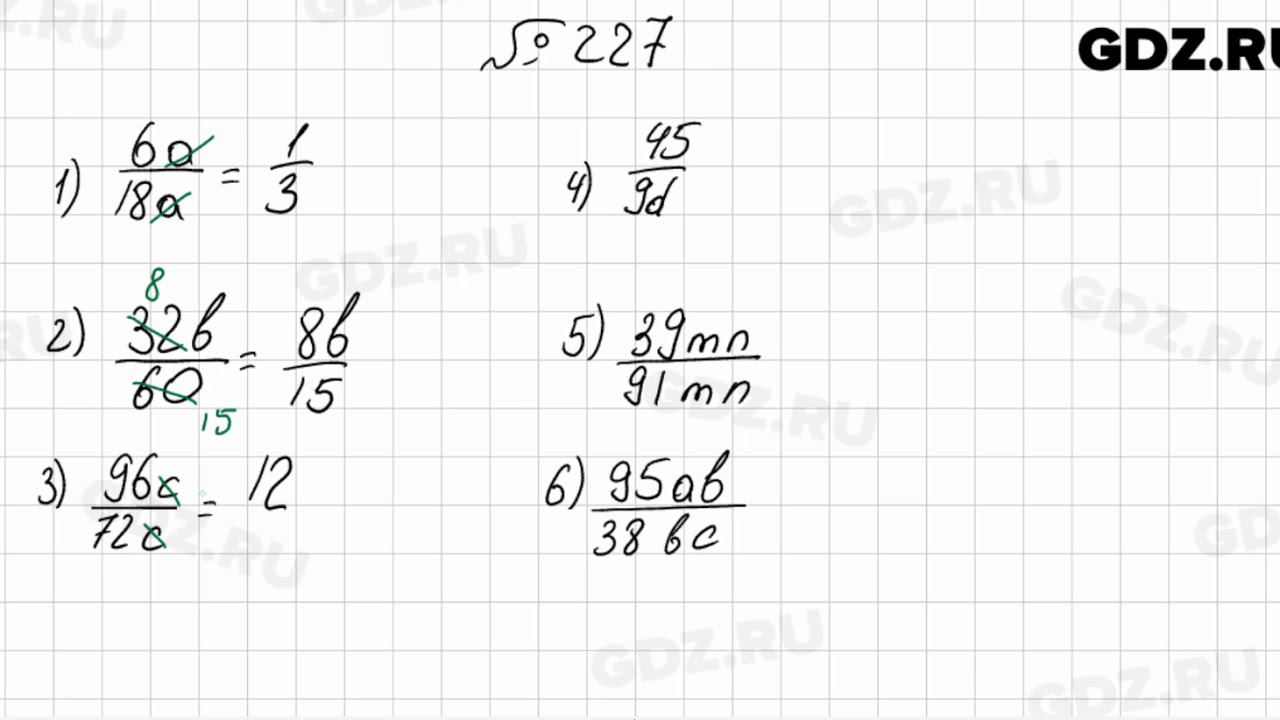 № 227
GDZ.RU
1) 6a/18a = 1/3
4) 45/9d
2) 32b/60 = 8b/15
8
15
5) 39mn/91mn
3) 96c/72c = 12
6) 95ab/38bc
GDZ.RU
GDZ.RU
GDZ.RU
GDZ.RU
GDZ.RU
GDZ.RU
GDZ.RU
GDZ.RU
GDZ.RU
GDZ.RU